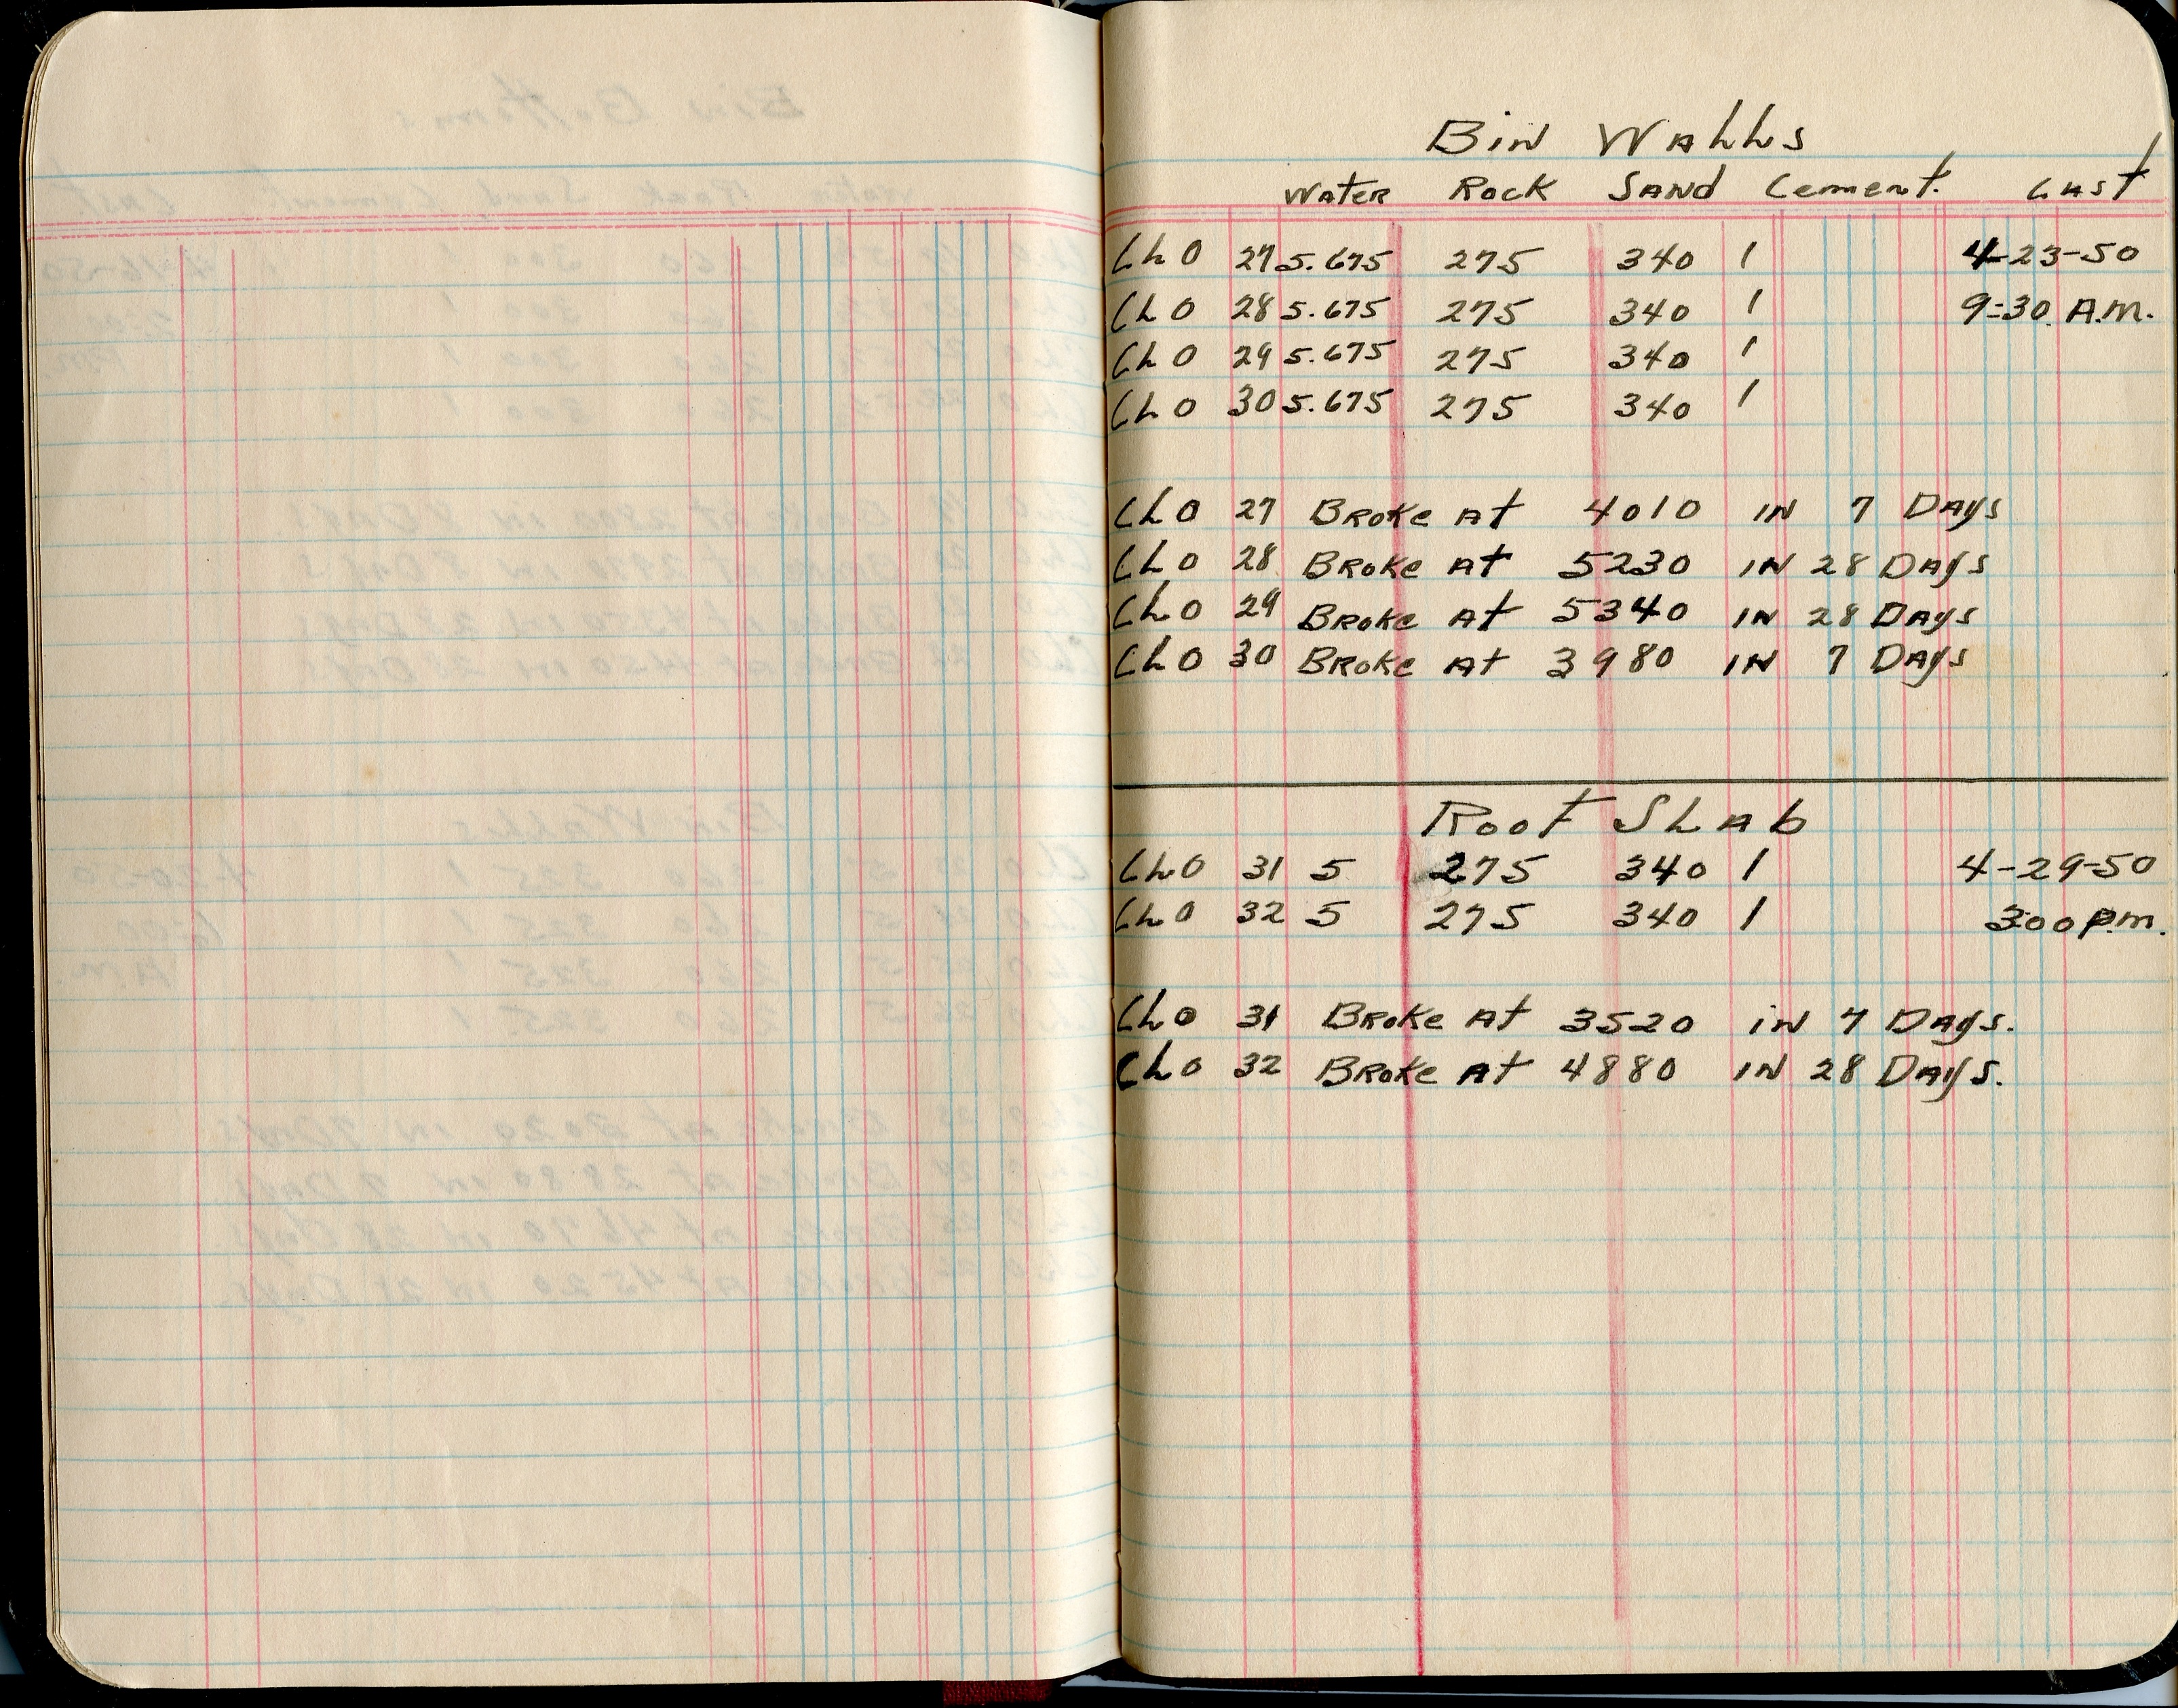 Bin WALLS
WATER ROCK SAND Cement. CAST
CLO 27 5.675 275 340 1 4-23-50
CLO 28 5.675 275 340 1 9:30 A.M.
CLO 29 5.675 275 340 1
CLO 30 5.675 275 340 1
CLO 27 BROKE AT 4010 IN 7 DAYS
CLO 28 BROKE AT 5230 IN 28 DAYS
CLO 29 BROKE AT 5340 IN 28 DAYS
CLO 30 BROKE AT 3980 IN 7 DAYS
Roof SLAb
CLO 31 5 275 340 1 4-29-50
CLO 32 5 275 340 1 3:00 P.m.
CLO 31 BROKE AT 3520 in 7 DAYS.
CLO 32 BROKE AT 4880 IN 28 DAYS.